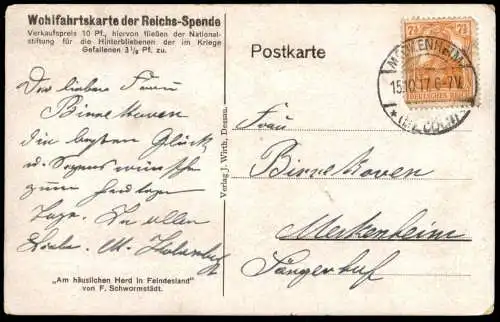 Wohlfahrtskarte der Reichs-Spende
Verkaufspreis 10 Pf., hiervon fließen der National-
stiftung für die Hinterbliebenen der im Kriege
Gefallenen 3⅓ Pf. zu.
Der lieben Frau
Birnekoven
die besten Glück
u. Segenswünsche
zum heutigen
Tage. In aller
Liebe. M.
„Am häuslichen Herd in Feindesland"
von F. Schwormstädt.
Verlag J. Wirth, Dessau.
Postkarte
7½ 7½
DEUTSCHES REICH
MECKENHEIM
15.10.17. 6-7V.
Frau
Birnekoven
Meckenheim
Sängerhof